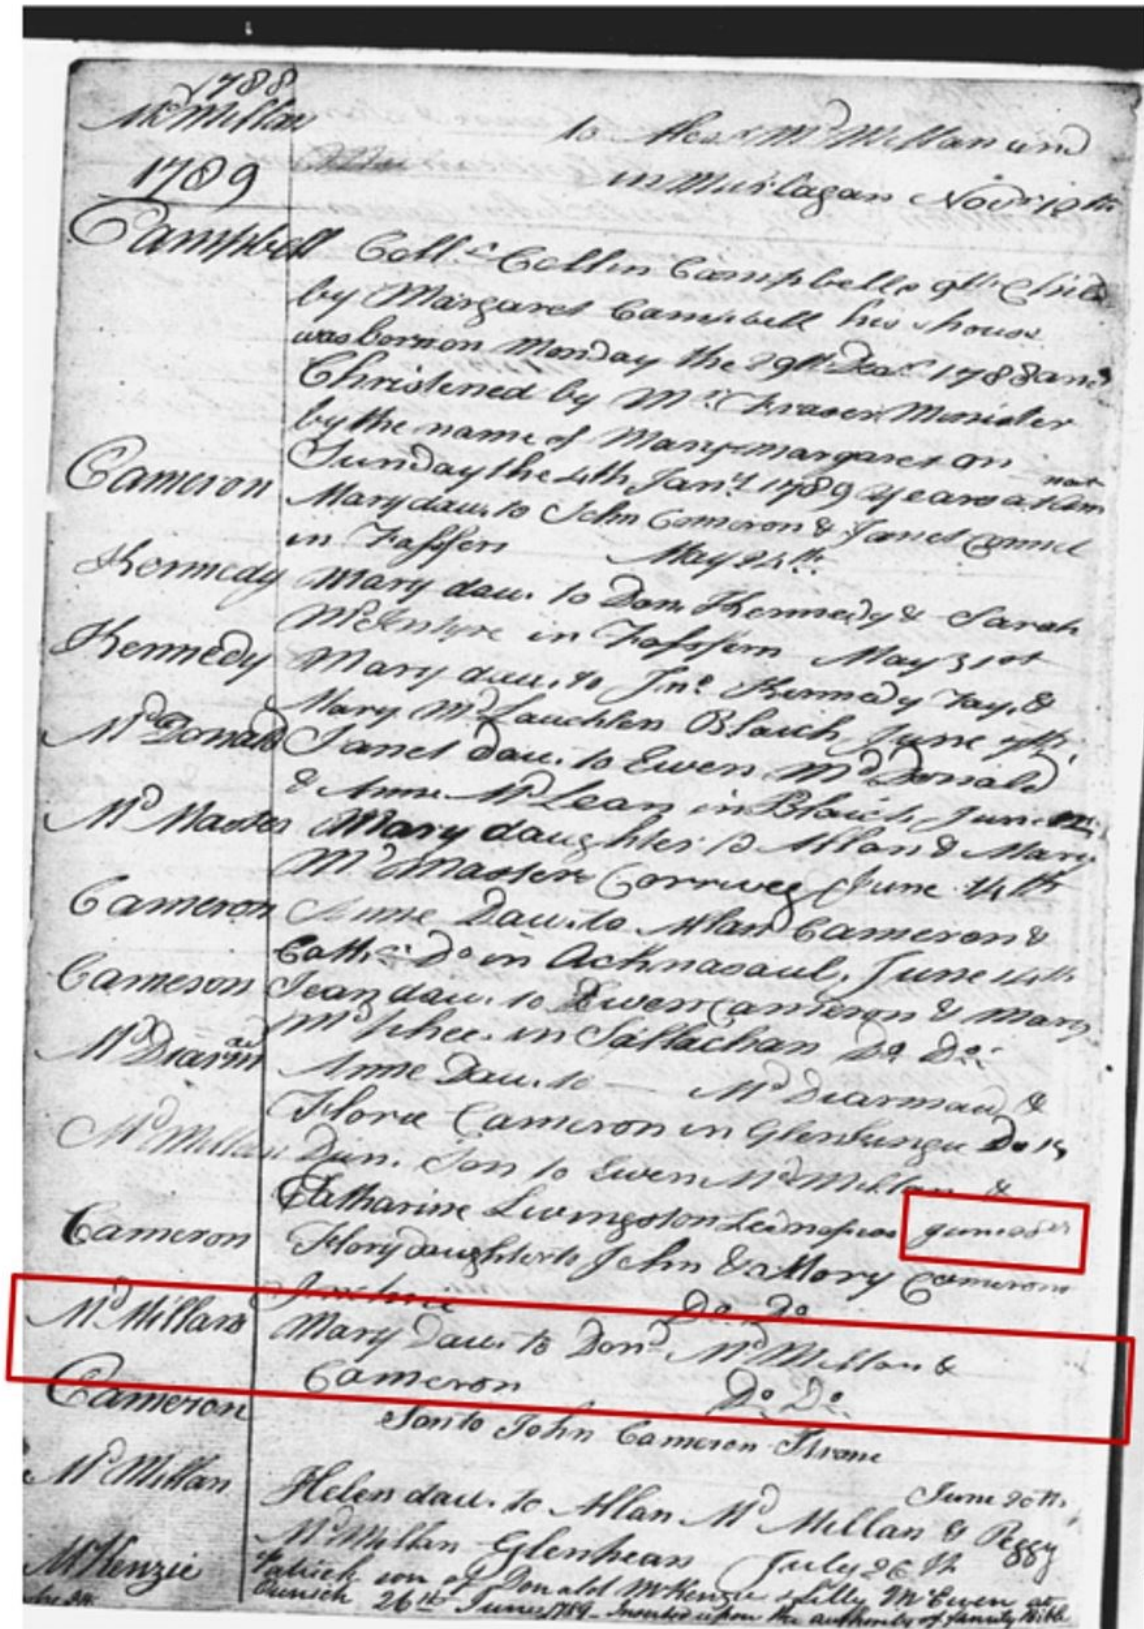 1788
McMillan
to Alexr McMillan and
in Murlagan Novr 12th
1789
Campbell
Collc Collin Campbells 9th Child
by Margaret Campbell his spouse
was born on Monday the 29th Decr 1788 and
Christened by Mr Fraser Minister
by the name of Mary Margaret on
Sunday the 4th Jany 1789 years
Cameron Mary daur to John Cameron & Janet
in Fassfern May 24th
Kennedy Mary dau. to Don. Kennedy & Sarah
McIntyre in Fassfern May 31st
Kennedy Mary dau. to Jno. Kennedy Tay. &
Mary McLauchlen Blaich June 7th
McDonald Janet dau. to Ewen McDonald
& Anne McLean in Blaich June
McMaster Mary daughter to Allan & Mary
McMaster Corrweg June 14th
Cameron Anne Dau. to Allan Cameron &
Cath. Do in Achnasaul, June 14th
Cameron Jean dau. to Ewen Cameron & Mary
McPhee in Sallachan Do Do
McDiarmad Anne Dau. to — McDiarmad &
Flora Cameron in Do
McMillan Dun. Son to Ewen McMillan &
Catharine Livingston
Cameron Flory daughter to John & Mary Cameron
Do Do
McMillan Mary Dau. to Dond McMillan &
Cameron Do Do
Cameron Son to John Cameron Strone
June 20th
McMillan Helen dau. to Allan McMillan & Peggy
McMillan Glenhean July 26th
McKenzie Patrick son of Donald McKenzie & Lilly McEwen at
Cunich 26th June 1789 - Inserted upon the authority of family Bible